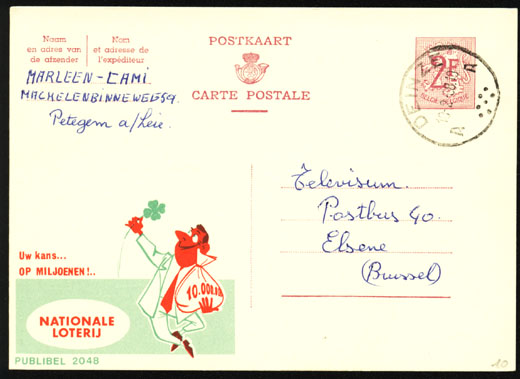 Naam
en adres van
de afzender
Nom
et adresse de
l'expéditeur
POSTKAART
CARTE POSTALE
2F
BELGIE-BELGIQUE
DEINZE
MARLEEN-CAMI.
MACHELENBINNEWEG 59
Petegem a/Leie.
Televisum.
Postbus 40.
Elsene
(Brussel)
Uw kans...
OP MILJOENEN!..
10.000.00
NATIONALE
LOTERIJ
PUBLIBEL 2048
10